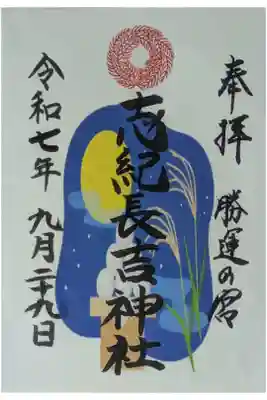 奉拝
勝運の宮
志紀長吉神社
令和七年 九月二十九日